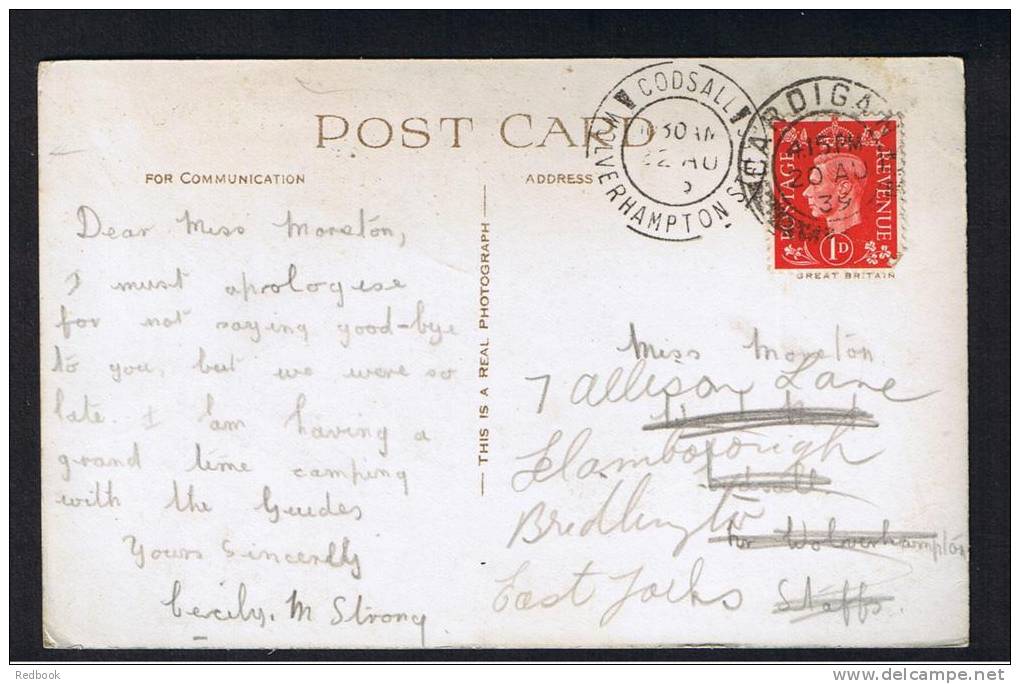 POST CARD
FOR COMMUNICATION
ADDRESS
THIS IS A REAL PHOTOGRAPH
CODSALL
WOLVERHAMPTON ST
30 AM
22 AU
CARDIGAN
4.15 PM
20 AU
39
POSTAGE
REVENUE
1D
GREAT BRITAIN
Dear Miss Moreton,
I must aprologise
for not saying good-bye
to you, but we were so
late. I am having a
grand time camping
with the Guides
Yours Sincerely
Cecily. M Strong
Miss Moreton
7 Allison Lane
Flamborough
Bridlington
nr Wolverhampton
East Yorks
Staffs.
Redbook
delcampe.net